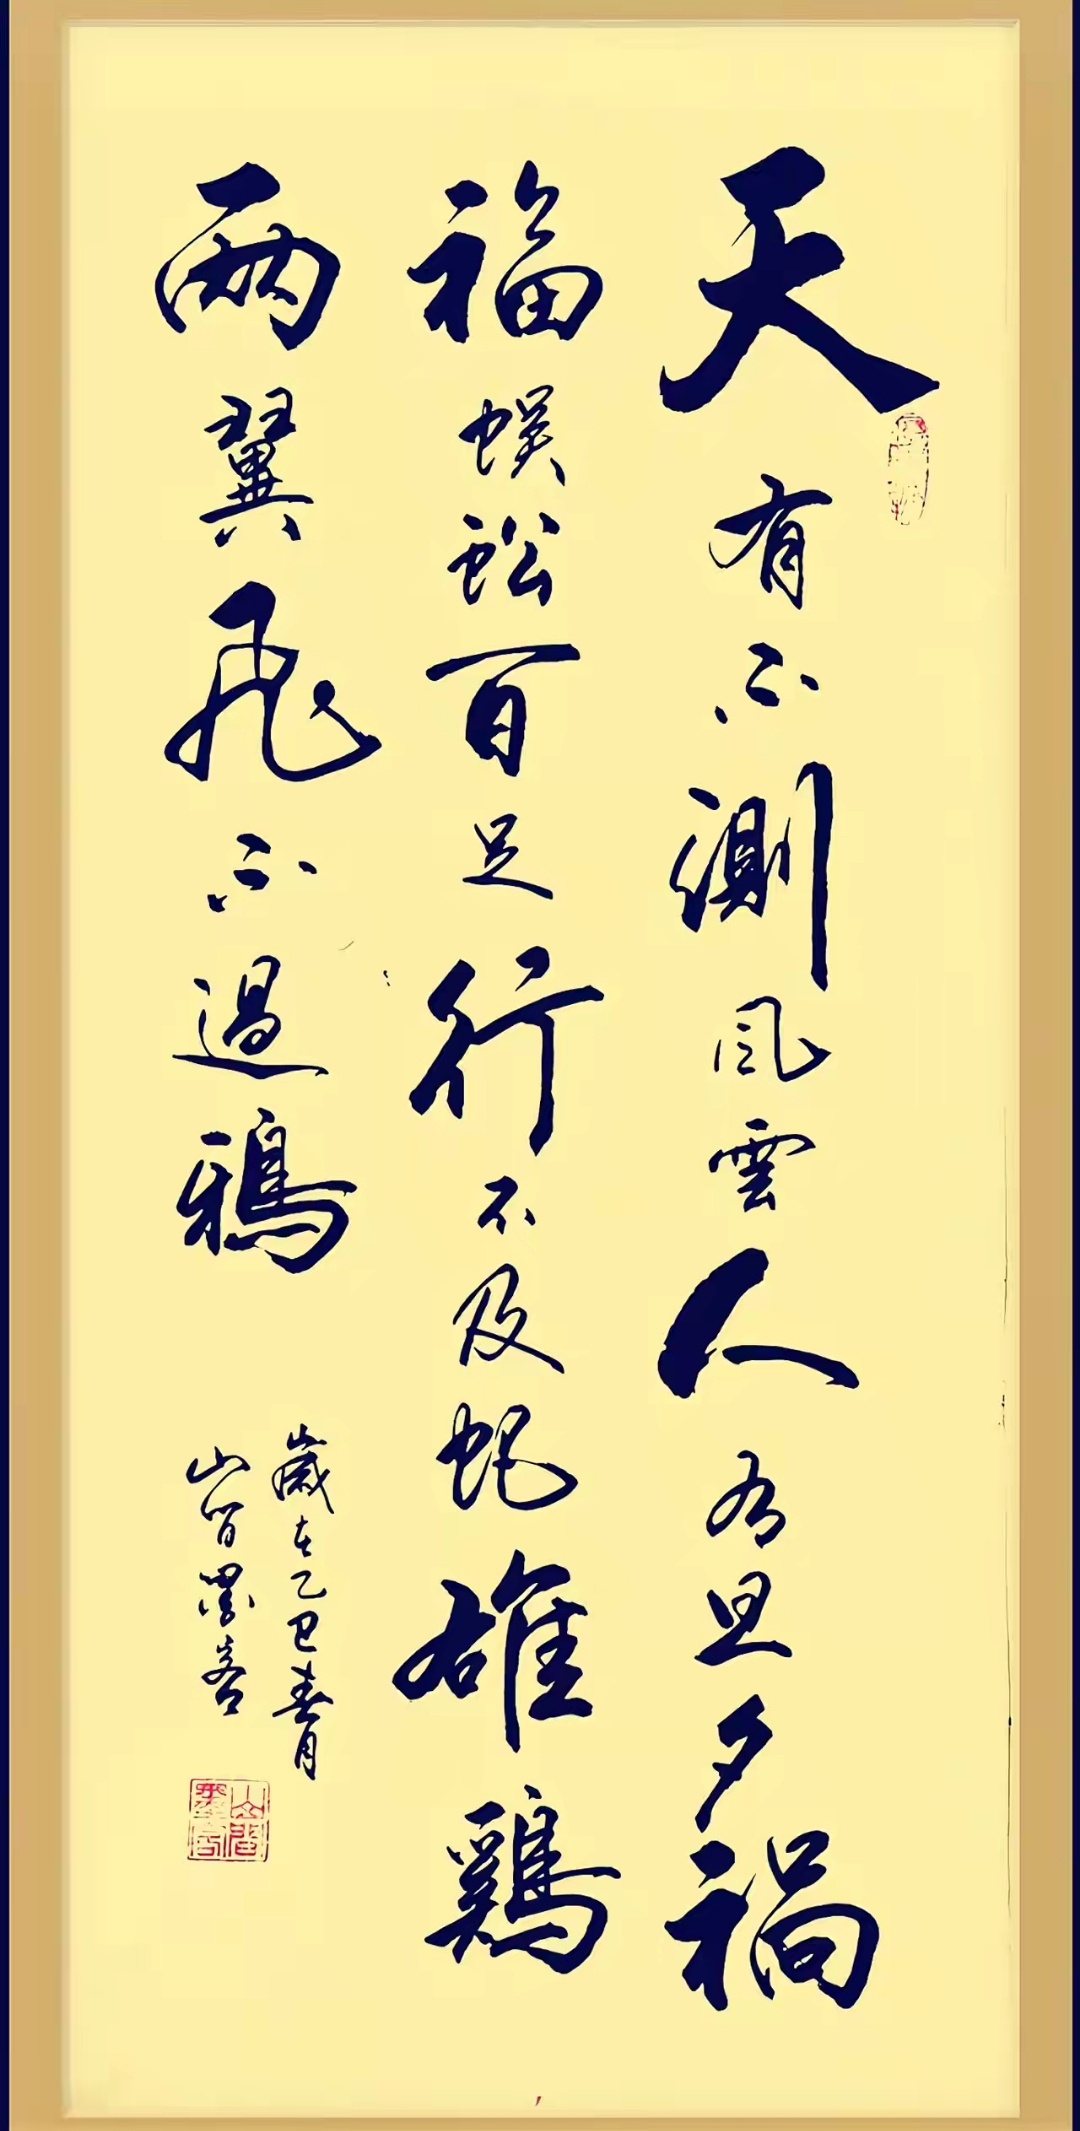 天有不測風雲人有旦夕禍
福蜈蚣百足行不及蛇雄鷄
兩翼飛不過鴉
歲在乙巳春月
山間墨客